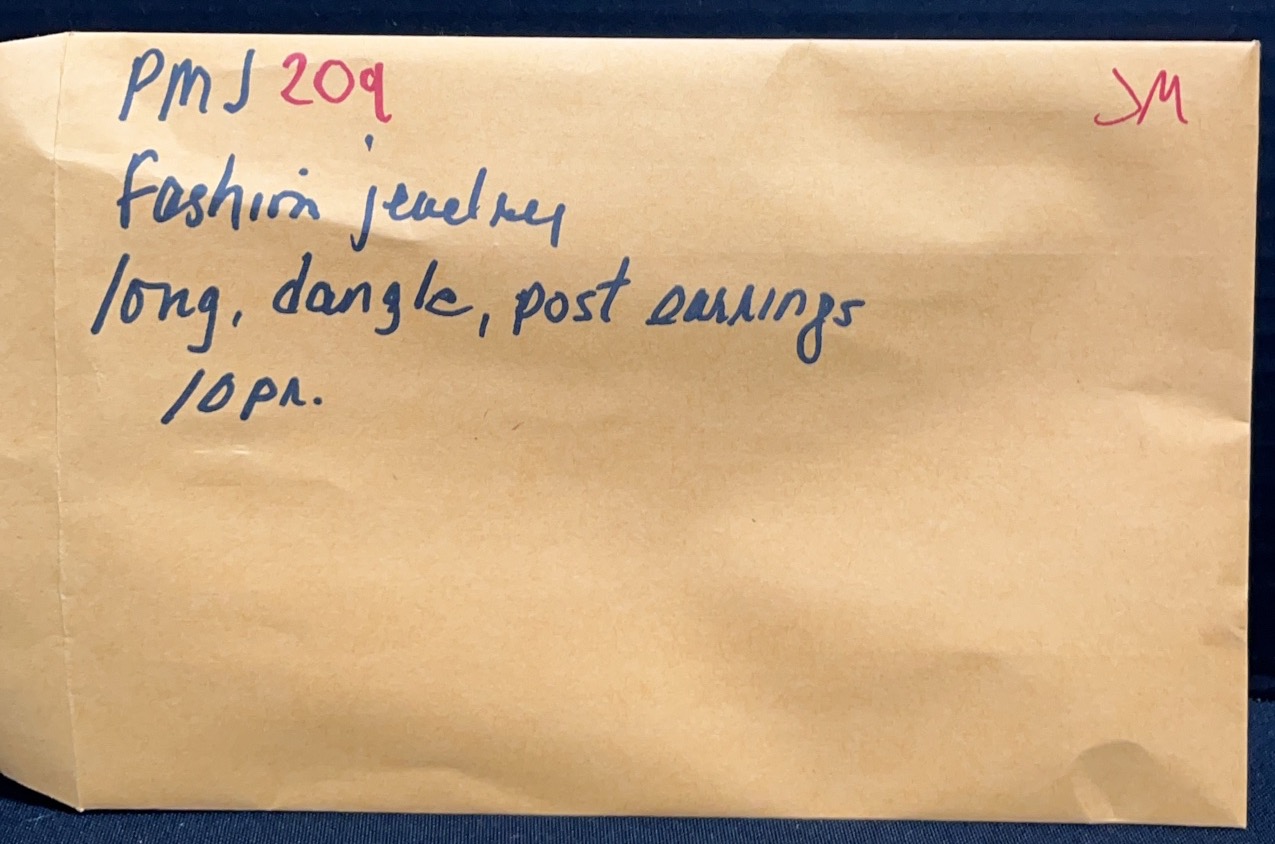 PMJ 209 JM
Fashion jewelry
long, dangle, post earrings
10 pr.